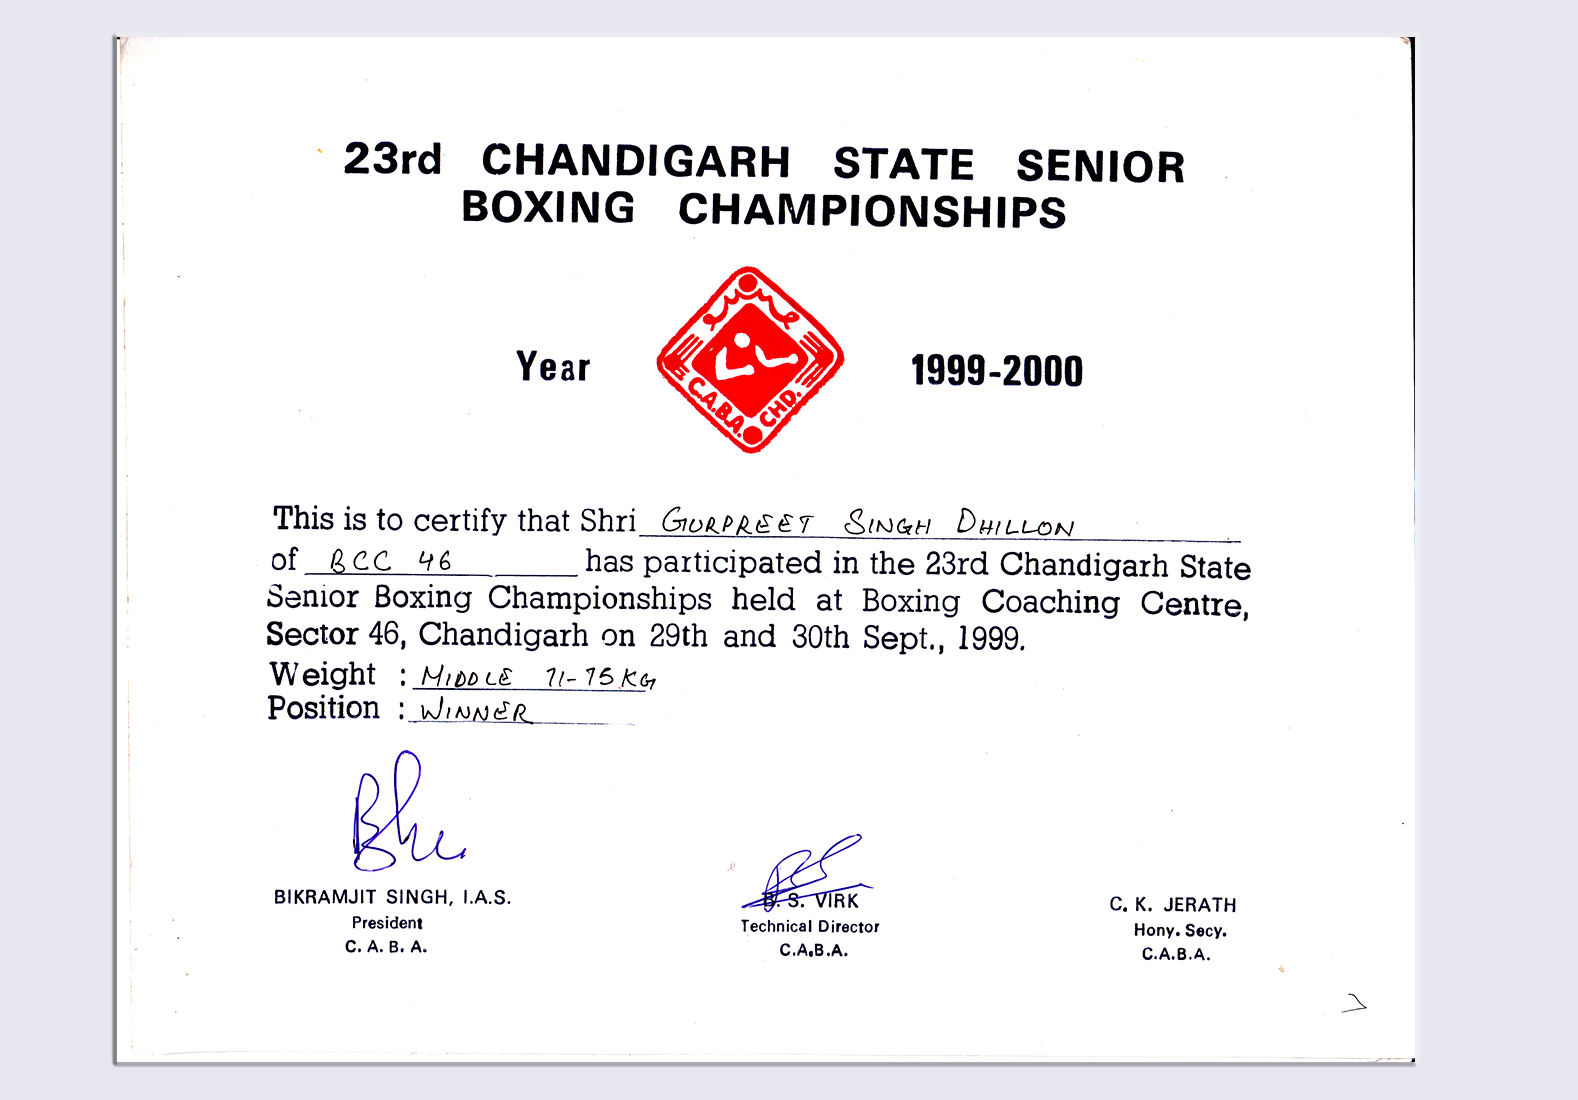 23rd CHANDIGARH STATE SENIOR
BOXING CHAMPIONSHIPS
Year 1999-2000
C.A.B.A. CHD.
This is to certify that Shri GURPREET SINGH DHILLON
of BCC 46 has participated in the 23rd Chandigarh State
Senior Boxing Championships held at Boxing Coaching Centre,
Sector 46, Chandigarh on 29th and 30th Sept., 1999.
Weight : MIDDLE 71-75 KG
Position : WINNER
BIKRAMJIT SINGH, I.A.S.
President
C. A. B. A.
B. S. VIRK
Technical Director
C.A.B.A.
C. K. JERATH
Hony. Secy.
C.A.B.A.